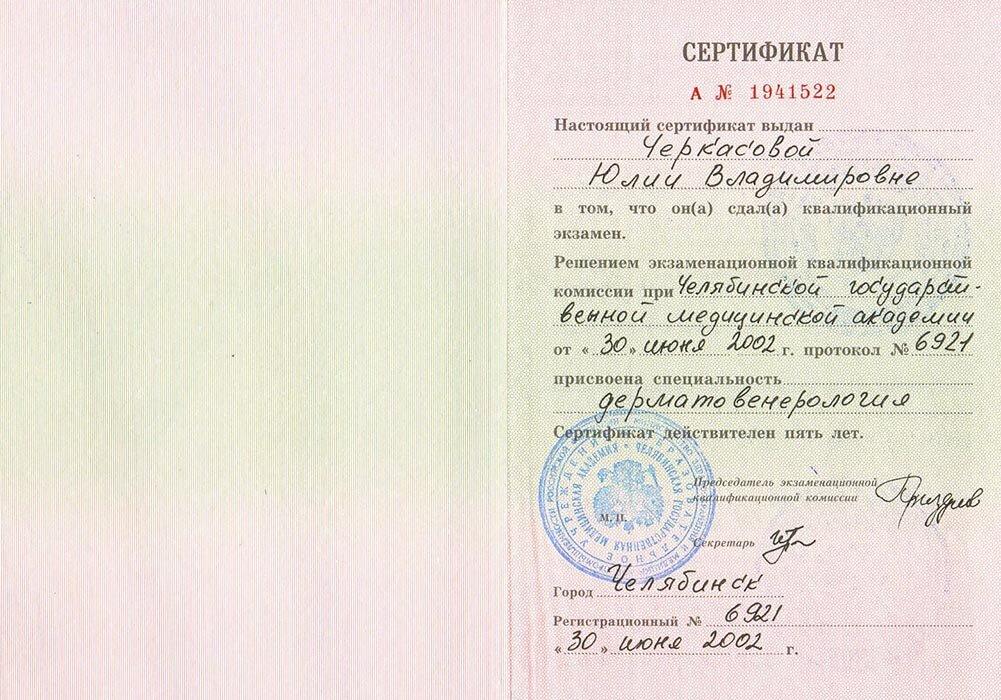 СЕРТИФИКАТ
А № 1941522
Настоящий сертификат выдан
Черкасовой
Юлии Владимировне
в том, что он(а) сдал(а) квалификационный
экзамен.
Решением экзаменационной квалификационной
комиссии при Челябинской государст-
венной медицинской академии
от «30» июня 2002 г. протокол № 6921
присвоена специальность
дерматовенерология
Сертификат действителен пять лет.
Председатель экзаменационной
квалификационной комиссии
М. П.
ЧЕЛЯБИНСКАЯ ГОСУДАРСТВЕННАЯ МЕДИЦИНСКАЯ АКАДЕМИЯ
Секретарь
Город Челябинск
Регистрационный № 6921
«30» июня 2002 г.